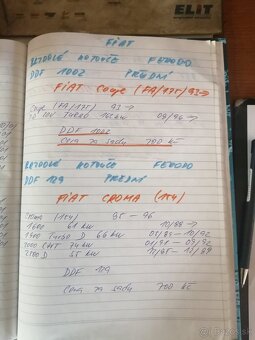 ELIT
FIAT
BRZDOVÉ KOTOUČE FERODO
DDF 1002 PŘEDNÍ
FIAT Coupe (FA/175) 93→
Coupe (FA/175) 93→
20 16V TURBO 09/96→
DDF 1002
Cena za sadu 700 kč
BRZDOVÉ KOTOUČE FERODO
DDF 129 PŘEDNÍ
FIAT CROMA (154)
Croma (154) 85 - 96
1600 61 kw 10/88→
1900 Turbo D 66 kw
2000 CHT 74 kw
2500 D 55 kw
DDF 129
Cena za sadu 700 kč